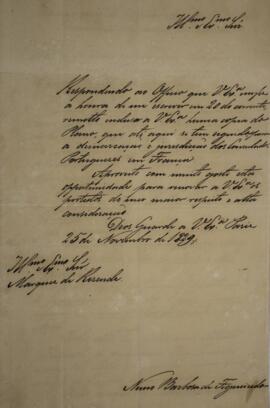 Illmo Exmo Snr
Respondendo ao Officio que V. Exa me fez
a honra de me escrever em 20 do corrente,
remetto incluza a V. Exa huma copia do
Plano, que até aqui se tem seguido para
a demarcação e jurisdicção dos Consulados
Portuguezes em França
Aproveito com muito gosto esta
opportunidade para renovar a V. Exa os
protestos do meu maior respeito e alta
consideração
Deos Guarde a V. Exa Paris
25 de Novembro de 1829
Illmo Exmo Snr
Marquez de Rezende
Nuno Barboza de Figueiredo